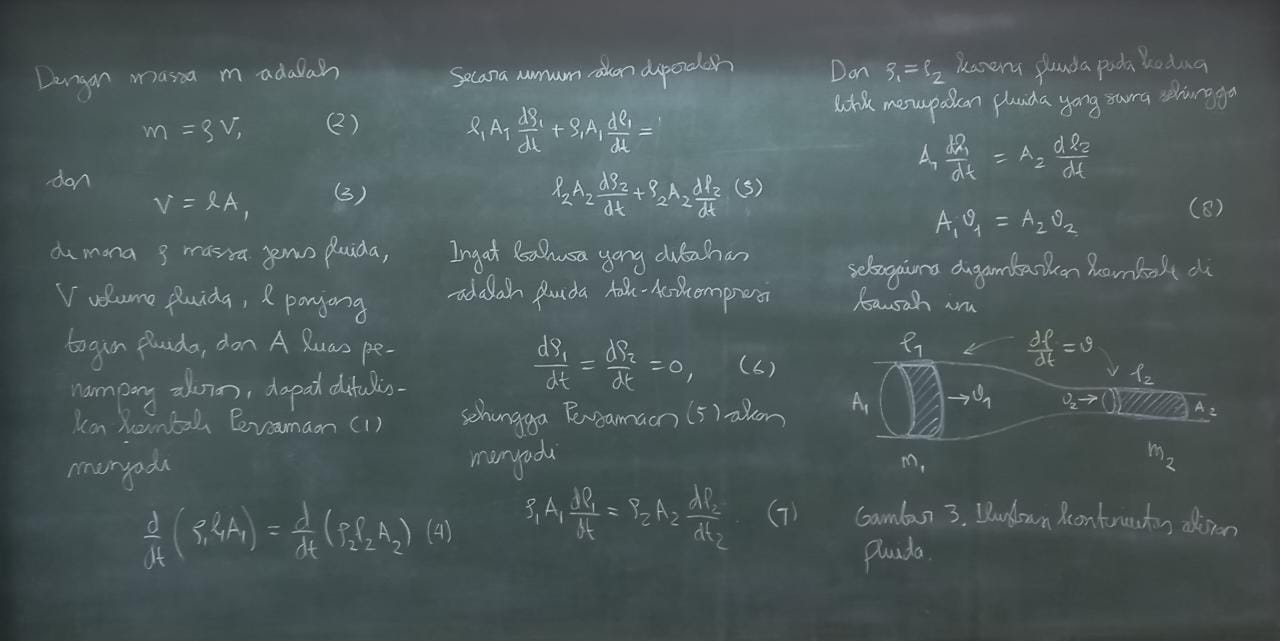 Dengan massa m adalah
m = ρV, (2)
dan
V = lA, (3)
di mana ρ massa jenis fluida,
V volume fluida, l panjang
bagian fluida, dan A luas pe-
nampang aliran, dapat ditulis-
kan kembali Persamaan (1)
menjadi
d/dt (ρ₁l₁A₁) = d/dt (ρ₂l₂A₂) (4)
Secara umum akan diperoleh
l₁A₁ dρ₁/dt + ρ₁A₁ dl₁/dt =
l₂A₂ dρ₂/dt + ρ₂A₂ dl₂/dt (5)
Ingat bahwa yang dibahas
adalah fluida tak-terkompresi
dρ₁/dt = dρ₂/dt = 0, (6)
sehingga Persamaan (5) akan
menjadi
ρ₁A₁ dl₁/dt = ρ₂A₂ dl₂/dt₂. (7)
Dan ρ₁ = ρ₂ karena fluida pada kedua
titik merupakan fluida yang sama sehingga
A₁ dl₁/dt = A₂ dl₂/dt
A₁v₁ = A₂v₂ (8)
sebagaimana digambarkan kembali di
bawah ini
l₁ dl/dt = v l₂
A₁ →v₁ v₂→ A₂
m₁ m₂
Gambar 3. Ilustrasi kontinuitas aliran
fluida.